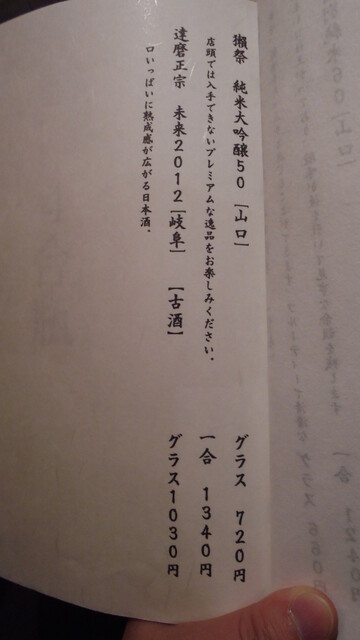 獺祭 純米大吟醸50 [山口] グラス 720円
店頭では入手できないプレミアムな逸品をお楽しみください。 一合 1340円
達磨正宗 未来2012[岐阜] [古酒] グラス1030円
口いっぱいに熟成感が広がる日本酒。